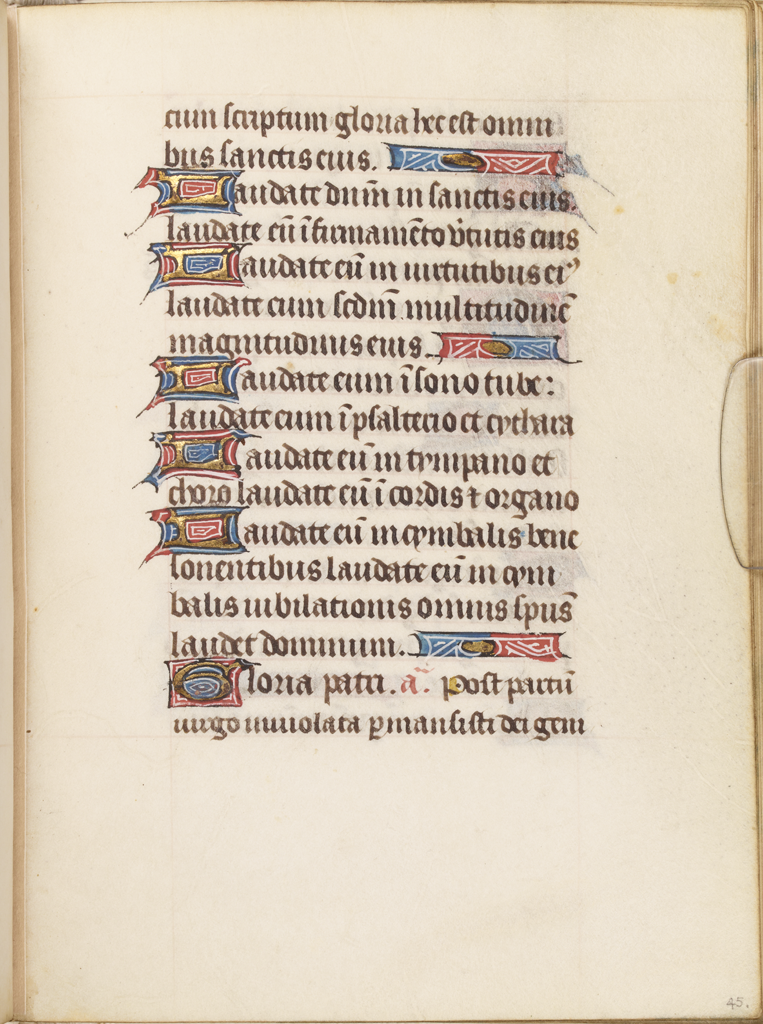 cium scriptum gloria hec est omni
bus sanctis eius.
Laudate dn̄m in sanctis eius.
laudate eū ī firmamēto v̄tutis eius
Laudate eū in uirtutibus ei⁹
laudate eum scd̄m multitudinē
magnitudinis eius.
Laudate eum ī sono tube:
laudate eum ī psalterio et cythara
Laudate eū in tympano et
choro laudate eū ī cordis ⁊ organo
Laudate eū in cymbalis bene
sonentibus laudate eū in cym
balis iubilationis omnis sp̄us
laudet dominum.
Gloria patri. a͞. Post partū
uirgo inuiolata ꝑmansisti dei geni
45.